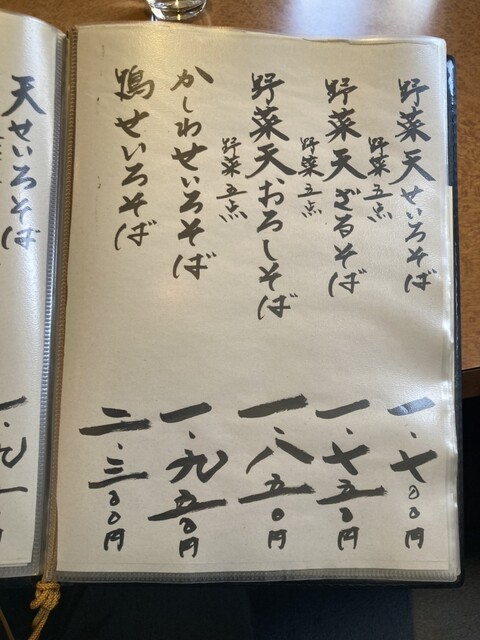 野菜天せいろそば
野菜五点
一・七〇〇円
野菜天ざるそば
野菜五点
一・七五〇円
野菜天おろしそば
野菜五点
一・八五〇円
かしわせいろそば
一・九五〇円
鴨せいろそば
二・三〇〇円
天せいろそば
一・九